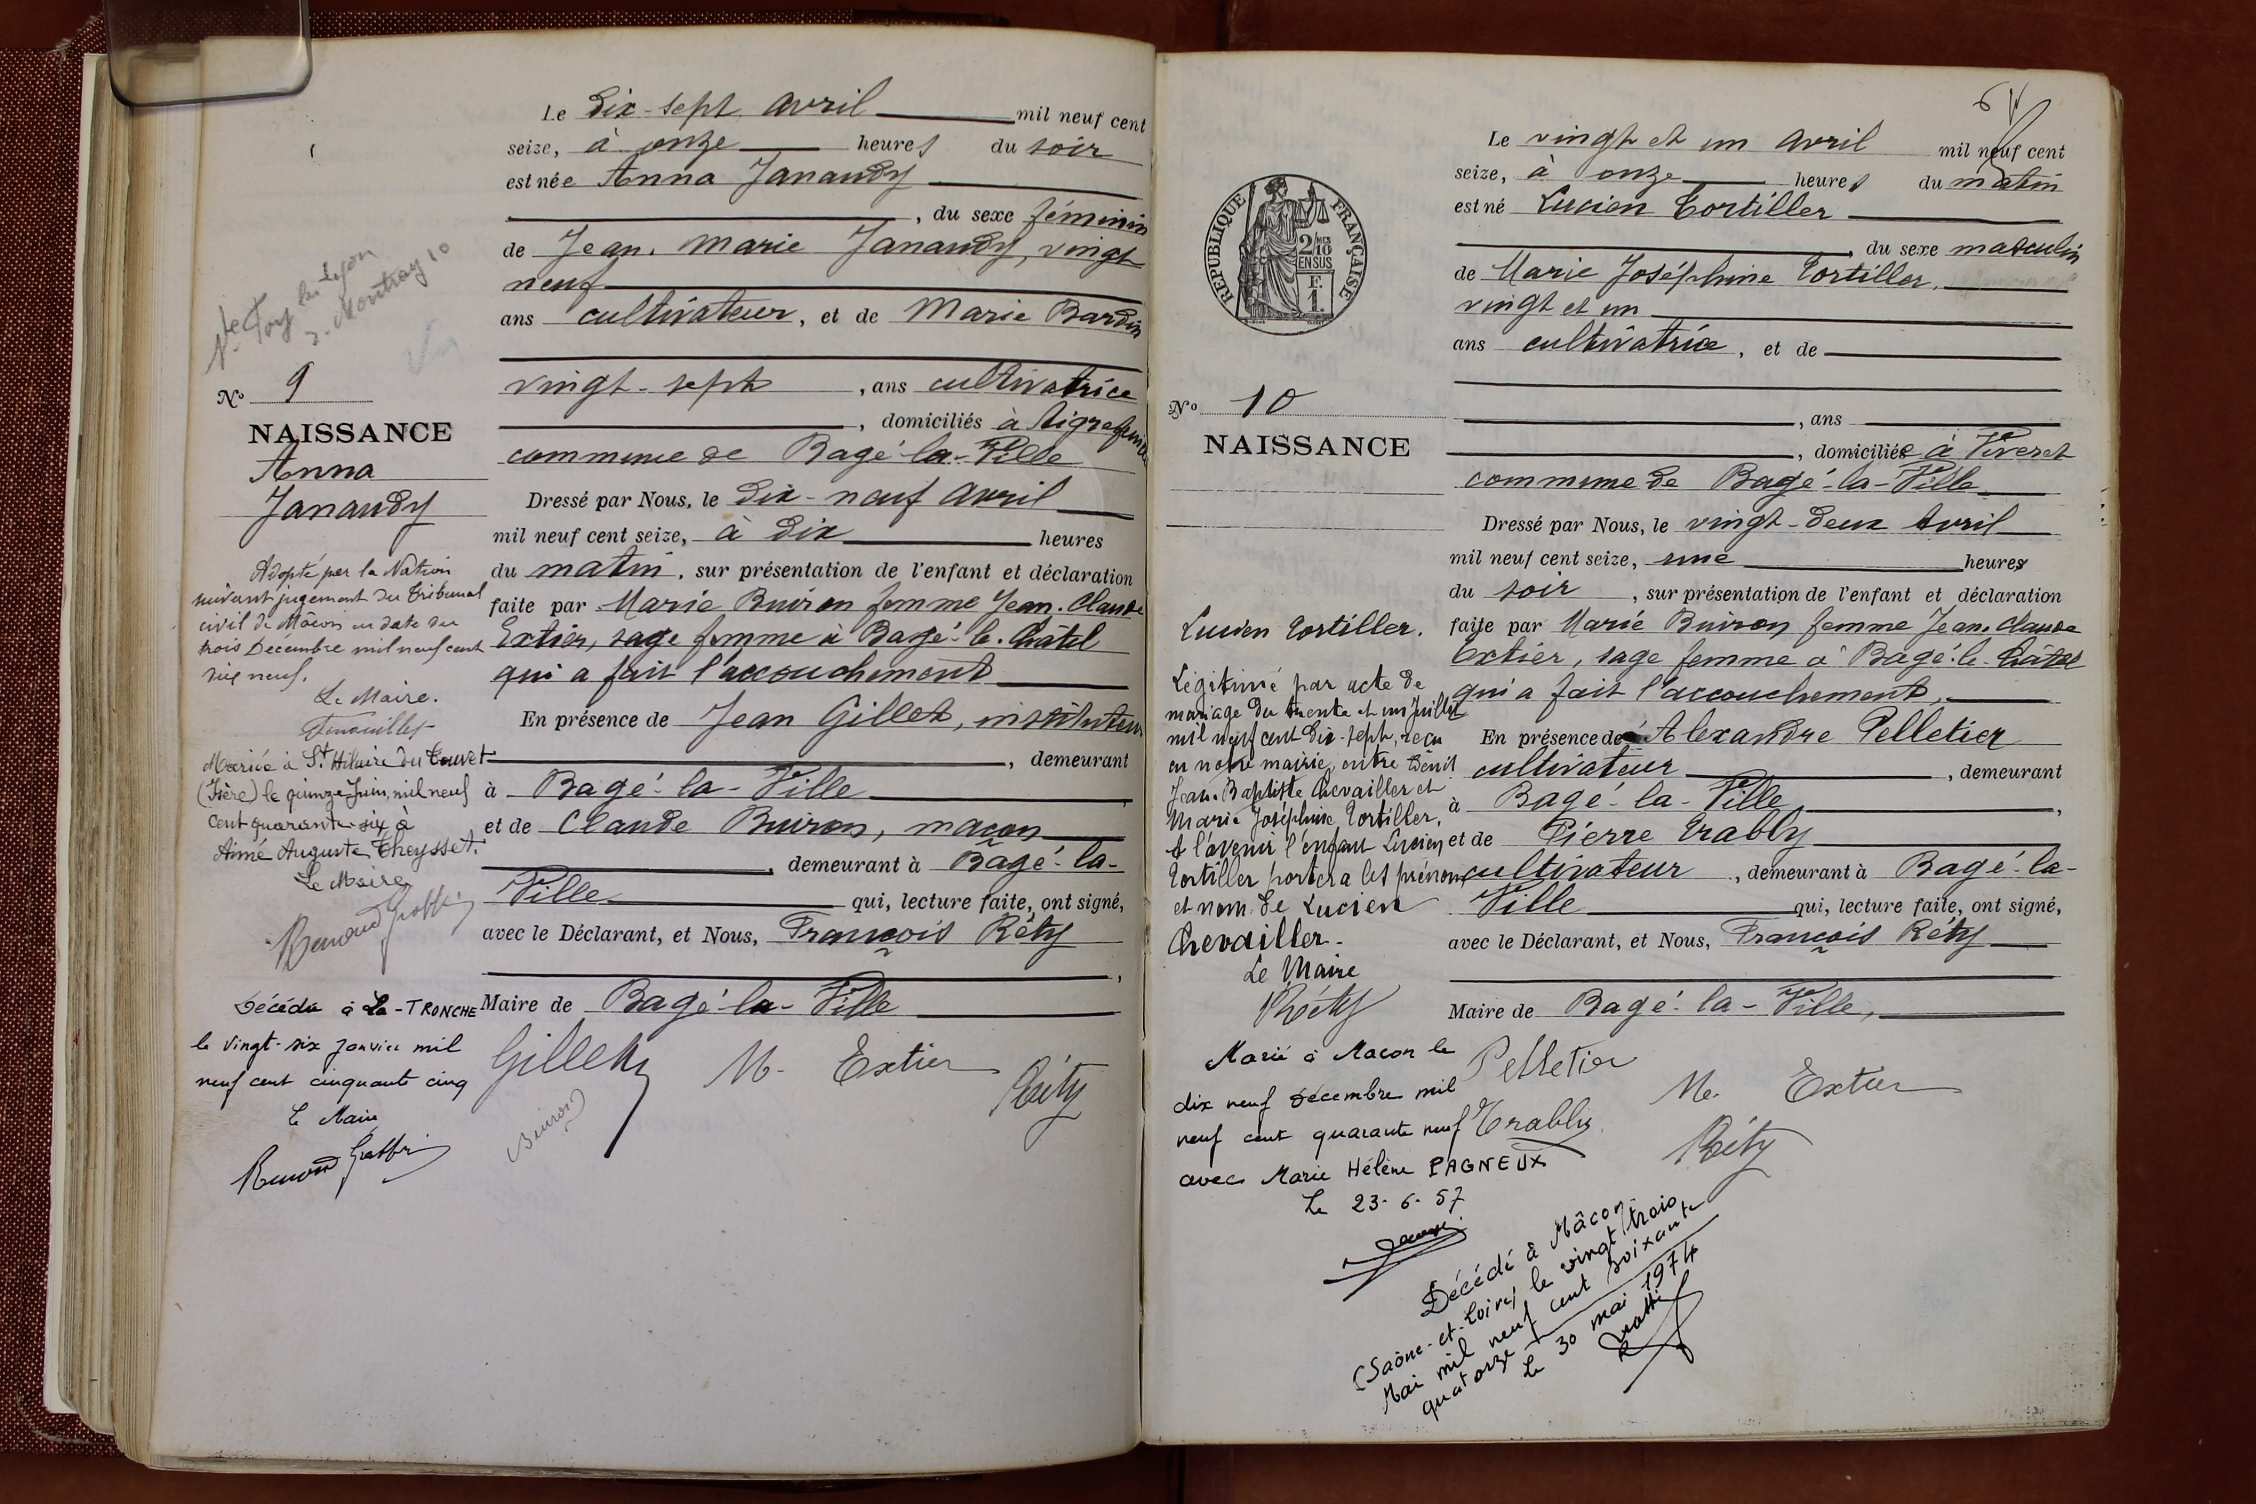 Ste Foy les Lyon
No 9
NAISSANCE
Anna
Janaudy
Adopté par la Nation
suivant jugement du Tribunal
civil de Mâcon en date du
trois Décembre mil neuf cent
dix neuf.
Le Maire.
Mariée à St Hilaire du Touvet
(Isère) le quinze Juin mil neuf
cent quarante-six à
Aimé Auguste Cheysset.
Le Maire
Décédée à La-TRONCHE
le vingt-six janvier mil
neuf cent cinquante cinq
Le Maire
Le dix-sept avril mil neuf cent
seize, à onze heures du soir
est née Anna Janaudy
, du sexe féminin
de Jean-Marie Janaudy, vingt
neuf
ans cultivateur, et de Marie Bardin
vingt-sept , ans cultivatrice
, domiciliés à Aigrefeuille
commune de Bagé-la-Ville
Dressé par Nous, le dix-neuf avril
mil neuf cent seize, à dix heures
du matin, sur présentation de l'enfant et déclaration
faite par Marie Buiron femme Jean-Claude
Extier, sage femme à Bagé-le-Châtel
qui a fait l'accouchement
En présence de Jean Gillet, instituteur
, demeurant
à Bagé-la-Ville
et de Claude Buiron, maçon
, demeurant à Bagé-la-
Ville qui, lecture faite, ont signé,
avec le Déclarant, et Nous, François Réty
,
Maire de Bagé-la-Ville
Gillet M. Extier
Buiron Réty
REPUBLIQUE FRANÇAISE
2/10 MES
EN SUS
F.
1.
No 10
NAISSANCE
Lucien Tortiller.
Légitimé par acte de
mariage du trente et un Juillet
mil neuf cent dix-sept, reçu
en notre mairie, entre Bénit
Jean-Baptiste Chevailler et
Marie Joséphine Tortiller,
A l'avenir l'enfant Lucien
Tortiller portera les prénom
et nom de Lucien
Chevailler.
Le Maire
Réty
Marié à Macon le
dix neuf décembre mil
neuf cent quarante neuf
avec Marie Hélène PAGNEUX
Le 23-6-57
Le vingt et un avril mil neuf cent
seize, à onze heures du matin
est né Lucien Tortiller
, du sexe masculin
de Marie Joséphine Tortiller,
vingt et un
ans cultivatrice, et de
, ans
, domiciliée à Viveret
commune de Bagé-la-Ville
Dressé par Nous, le vingt-deux avril
mil neuf cent seize, une heures
du soir , sur présentation de l'enfant et déclaration
faite par Marie Buiron femme Jean-Claude
Extier, sage femme à Bagé-le-Châtel
qui a fait l'accouchement,
En présence de Alexandre Pelletier
cultivateur , demeurant
à Bagé-la-Ville ,
et de Pierre Trably
cultivateur , demeurant à Bagé-la-
Ville qui, lecture faite, ont signé,
avec le Déclarant, et Nous, François Réty
Maire de Bagé-la-Ville,
Pelletier M. Extier
Trably Réty
Décédé à Mâcon
(Saône-et-Loire) le vingt trois
Mai mil neuf cent soixante
quatorze
Le 30 mai 1974